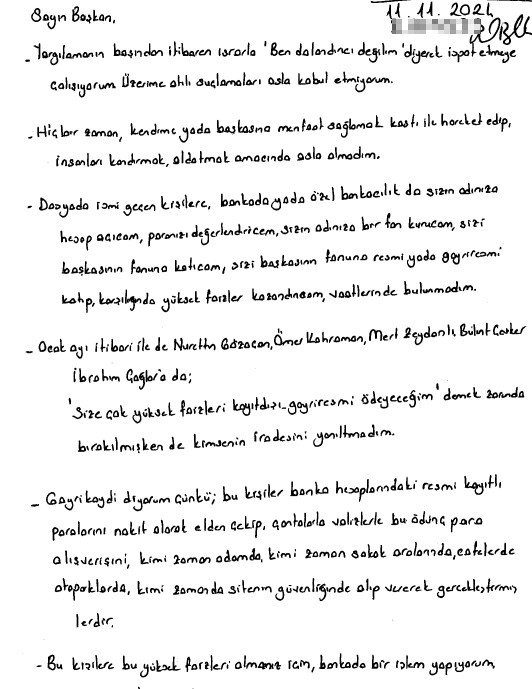 Sayın Başkan,
11.11.2024
- Yargılamanın başından itibaren ısrarla 'Ben dolandırıcı değilim' diyerek ispat etmeye
çalışıyorum Üzerime atılı suçlamaları asla kabul etmiyorum.
- Hiçbir zaman, kendime yada başkasına menfaat sağlamak kastı ile hareket edip,
insanları kandırmak, aldatmak amacında asla olmadım.
- Dosyada ismi geçen kişilere, bankada yada özel bankacılık da sizin adınıza
hesap açıcam, paranızı değerlendiricem, sizin adınıza bir fon kurucam, sizi
başkasının fonuna katıcam, sizi başkasının fonuna resmi yada gayriresmi
katıp, karşılığında yüksek faizler kazandırıcam, vaatlerinde bulunmadım.
- Ocak ayı itibari ile de Nurettin Gözaçan, Ömer Kahraman, Mert Zeydanlı, Bülent Çeviker
İbrahim Çağlar'a da;
'Size çok yüksek faizleri kayıtdışı-gayriresmi ödeyeceğim' demek zorunda
bırakılmışken de kimsenin iradesini yanıltmadım.
- Gayrikaydi diyorum çünkü; bu kişiler banka hesaplarındaki resmi kayıtlı
paralarını nakit olarak elden çekip, çantalarla valizlerle bu ödünç para
alışverişini, kimi zaman odamda, kimi zaman sokak aralarında, cafelerde
otoparklarda, kimi zamanda sitenin güvenliğinde alıp vererek gerçekleştirmiş
lerdir.
- Bu kişilere bu yüksek faizleri almanız için, bankada bir işlem yapıyorum